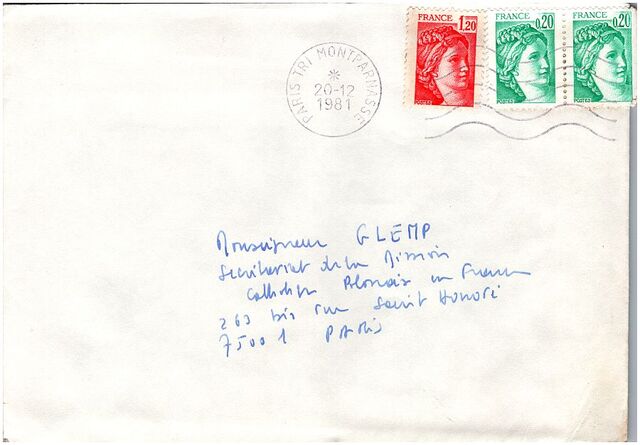 FRANCE 1,20
FRANCE 0,20
FRANCE 0,20
POSTES
POSTES
POSTES
PARIS TRI MONTPARNASSE
*
20-12
1981
Monseigneur GLEMP
Secrétariat de la Mission
Catholique Polonais en France
263 bis rue Saint Honoré
75001 PARIS